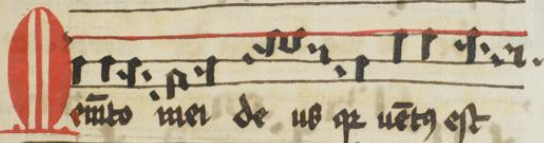 Mem̅to mei de us qꝛ uẽtꝯ est